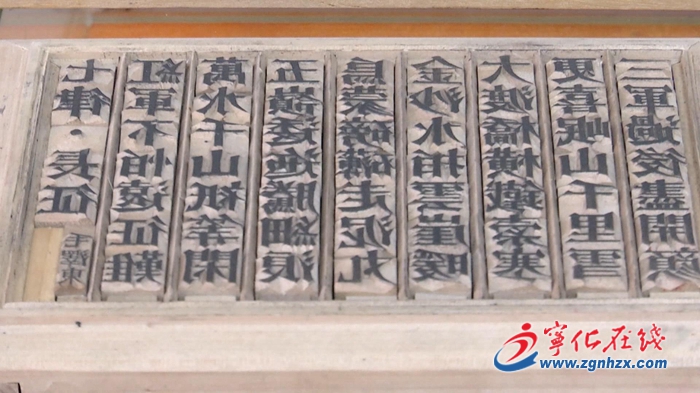 七律·長征
毛澤東
紅軍不怕遠征難
萬水千山祇等閑
五嶺逶迤騰細浪
烏蒙磅礴走泥丸
金沙水拍雲崖暖
大渡橋橫鐵索寒
更喜岷山千里雪
三軍過後盡開顏
寧化在线
www.zgnhzx.com